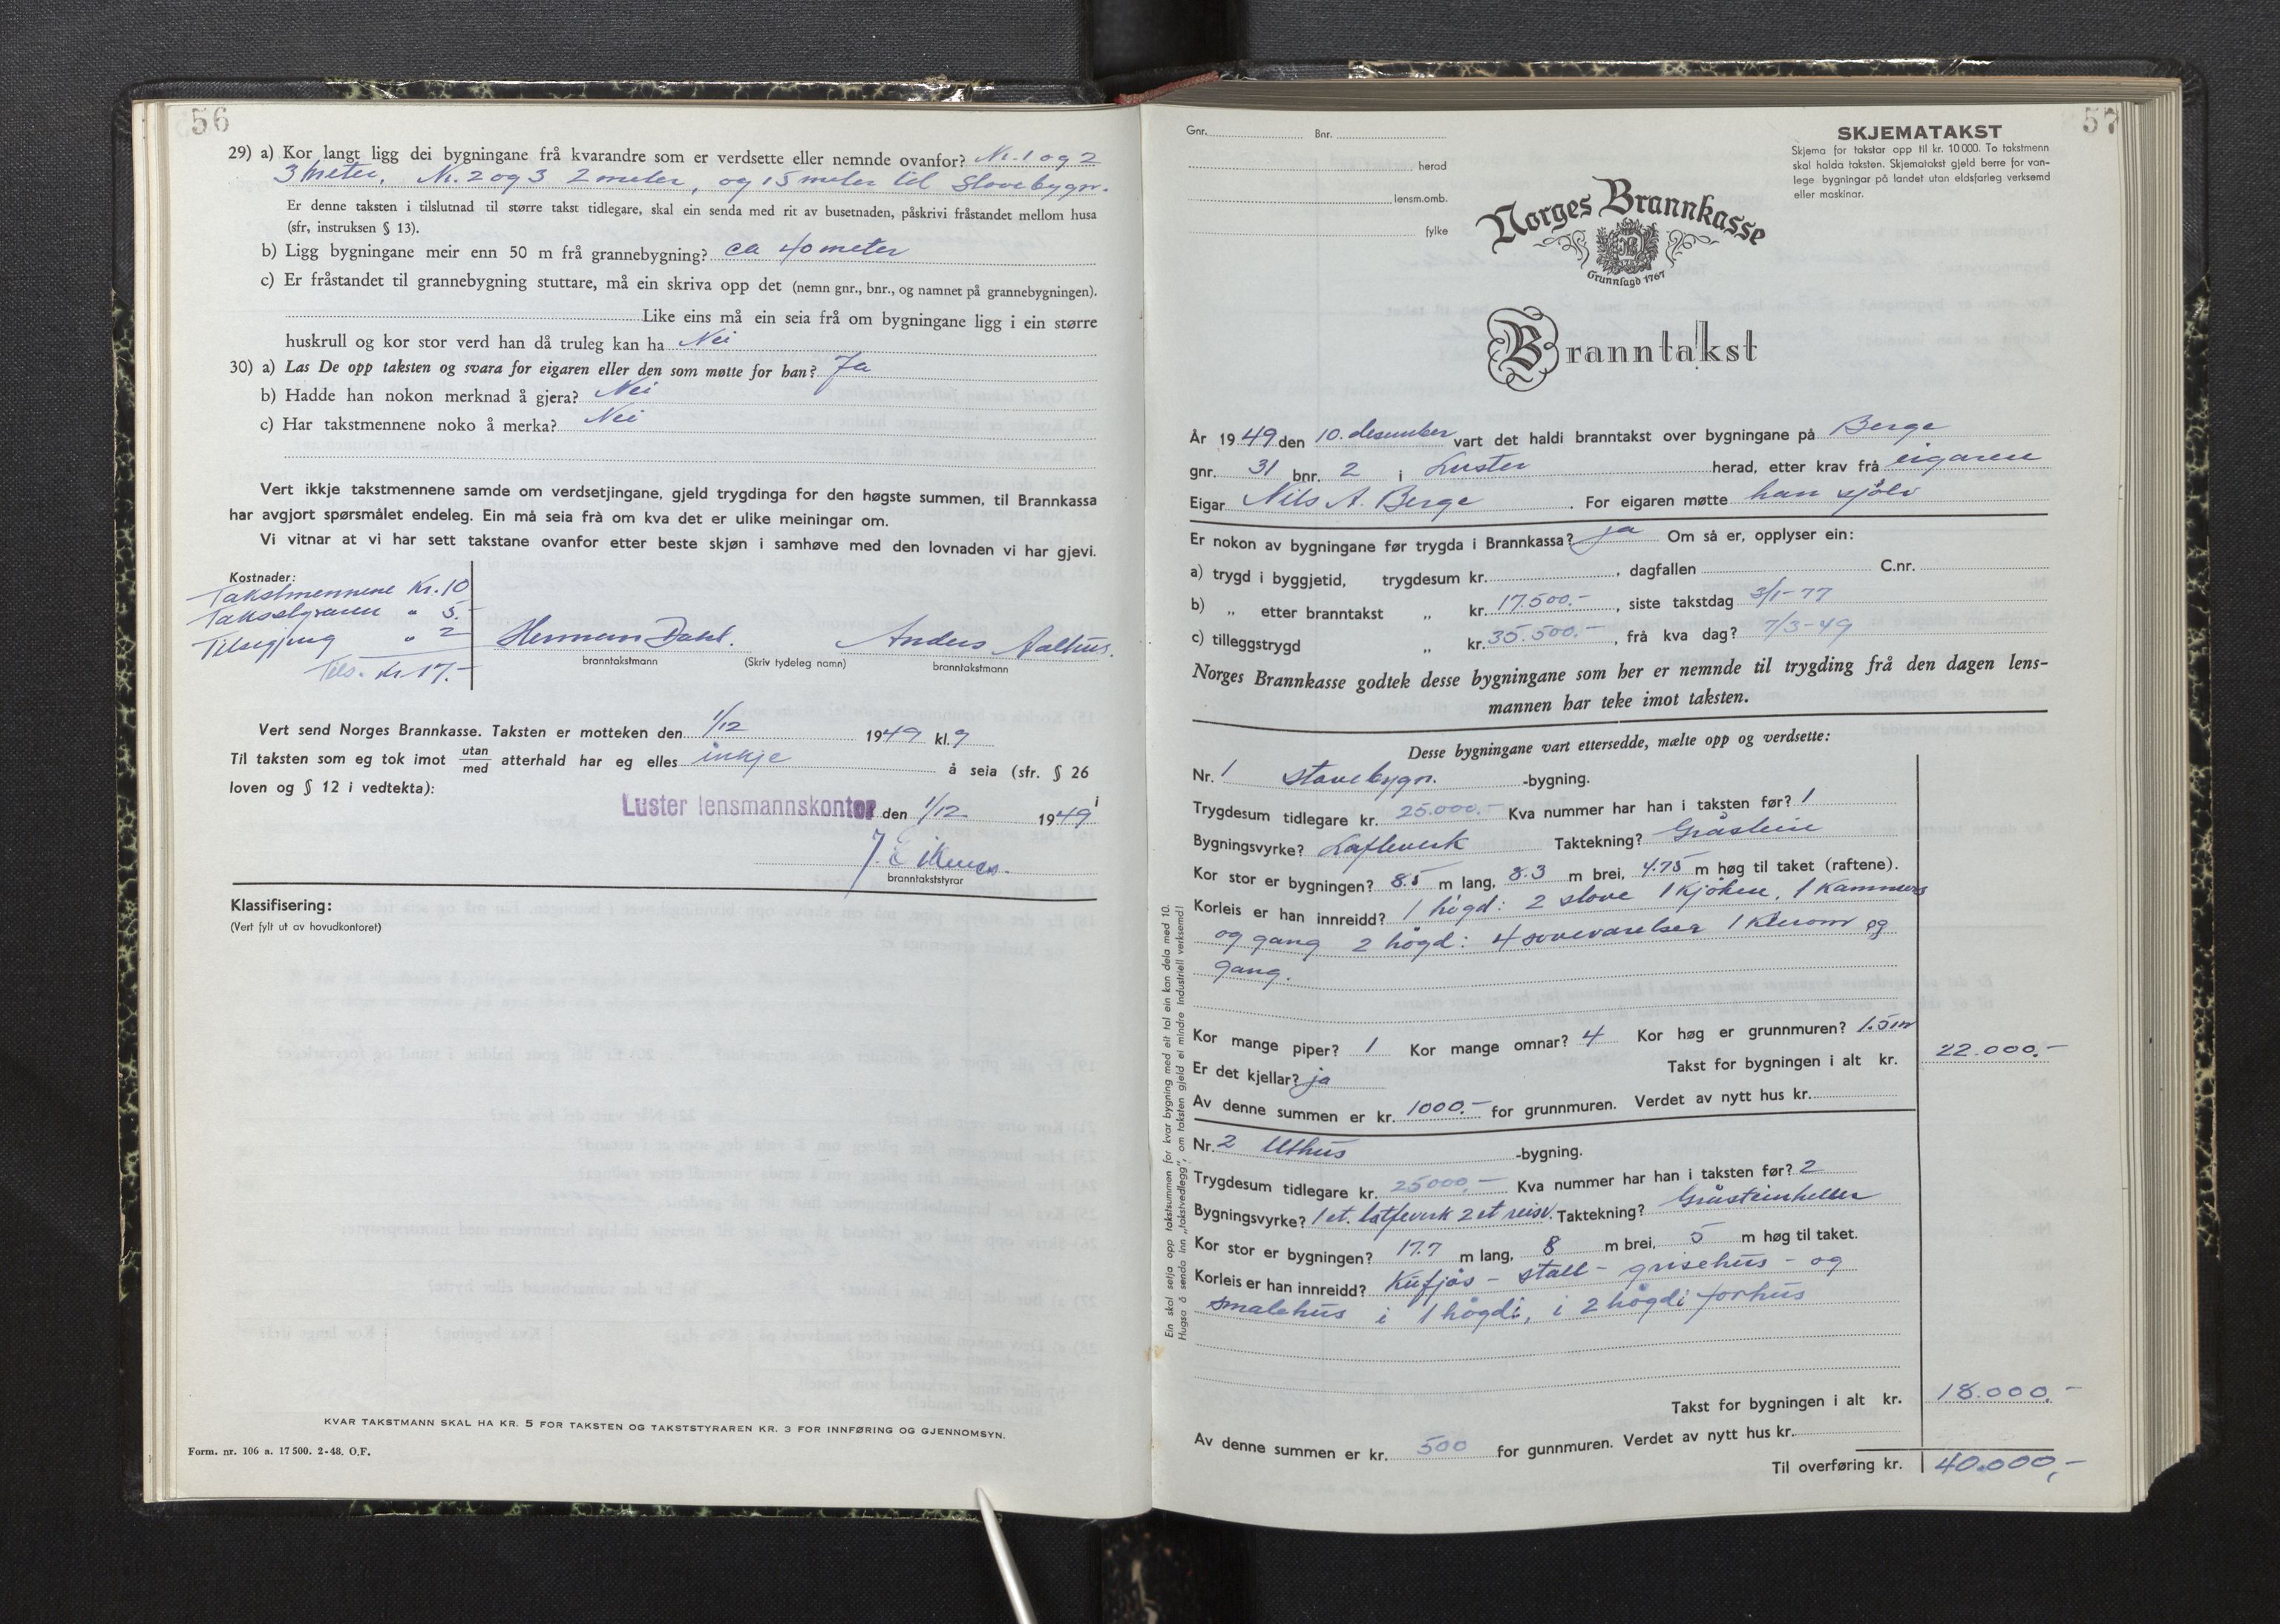 56
29) a) Kor langt ligg dei bygningane frå kvarandre som er verdsette eller nemnde ovanfor? Nr. 1 og 2
3 meter, Nr. 2 og 3 2 meter, og 15 meter til Stovebygn.
Er denne taksten i tilslutnad til større takst tidlegare, skal ein senda med rit av busetnaden, påskrivi fråstandet mellom husa
(sfr, instruksen § 13).
b) Ligg bygningane meir enn 50 m frå grannebygning? ca 40 meter
c) Er fråstandet til grannebygning stuttare, må ein skriva opp det (nemn gnr., bnr., og namnet på grannebygningen).
Like eins må ein seia frå om bygningane ligg i ein større
huskrull og kor stor verd han då truleg kan ha Nei
30) a) Las De opp taksten og svara for eigaren eller den som møtte for han? Ja
b) Hadde han nokon merknad å gjera? Nei
c) Har takstmennene noko å merka? Nei
Vert ikkje takstmennene samde om verdsetjingane, gjeld trygdinga for den høgste summen, til Brannkassa
har avgjort spørsmålet endeleg. Ein må seia frà om kva det er ulike meiningar om.
Vi vitnar at vi har sett takstane ovanfor etter beste skjøn i samhøve med den lovnaden vi har gjevi.
Kostnader:
Takstmennene Kr. 10
" 5.
" 2
Tils. Kr 17.-
Herman Dahl. Anders Aalhus.
branntakstmann (Skriv tydeleg namn) branntakstmann
Vert send Norges Brannkasse. Taksten er motteken den 1/12 1949 kl. 9
Til taksten som eg tok imot utan/med atterhald har eg elles inkje å seia (sfr. § 26
loven og § 12 i vedtekta):
Luster lensmannskontor den 1/12 1949
branntakststyrar
Klassifisering:
(Vert fylt ut av hovudkontoret)
KVAR TAKSTMANN SKAL HA KR. 5 FOR TAKSTEN OG TAKSTSTYRAREN KR. 3 FOR INNFØRING OG GJENNOMSYN.
Form. nr. 106 a. 17500. 2-48. O.F.
57
Gnr. Bnr.
herad
lensm.omb.
fylke
SKJEMATAKST
Skjema for takstar opp til kr. 10000. To takstmenn
skal halda taksten. Skjematakst gjeld berre for van-
lege bygningar på landet utan eldsfarleg verksemd
eller maskinar.
Norges Brannkasse
Grunnlagd 1767
Branntakst
År 1949 den 10. desember vart det haldi branntakst over bygningane på Berge
gnr. 31 bnr. 2 i Luster herad, etter krav frå eigaren
Eigar Nils A. Berge. For eigaren møtte han sjölv
Er nokon av bygningane før trygda i Brannkassa? ja Om så er, opplyser ein:
a) trygd i byggjetid, trygdesum kr. , dagfallen C.nr.
b) „ etter branntakst „ kr. 17.500.- , siste takstdag 3/1-77
c) tilleggstrygd „ kr. 35.500.- , frå kva dag? 7/3-49
Norges Brannkasse godtek desse bygningane som her er nemnde til trygding frå den dagen lens-
mannen har teke imot taksten.
Desse bygningane vart ettersedde, mælte opp og verdsette:
Nr. 1 Stovebygn. -bygning.
Trygdesum tidlegare kr. 25.000.- Kva nummer har han i taksten før? 1
Bygningsvyrke? Lafteverk Taktekning? Gråstein
Kor stor er bygningen? 8.5 m lang, 8.3 m brei, 4.75 m høg til taket (raftene).
Korleis er han innreidd? 1 högd: 2 stove 1 Kjöken, 1 Kammers
og gang 2 högd: 4 sovevarelser 1 Klerom og
gang.
Kor mange piper? 1 Kor mange omnar? 4 Kor høg er grunnmuren? 1.5 m
Er det kjellar? ja Takst for bygningen i alt kr. 22.000.-
Av denne summen er kr. 1000.- for grunnmuren. Verdet av nytt hus kr.
Nr. 2 Uthus -bygning.
Trygdesum tidlegare kr. 25000.- Kva nummer har han i taksten før? 2
Bygningsvyrke? 1 et. lafteverk 2 et reisv. Taktekning? Gråsteinheller
Kor stor er bygningen? 17.7 m lang, 8 m brei, 5 m høg til taket.
Korleis er han innreidd? Kufjös - stall - grisehus - og
smalehus i 1 högdi, i 2 högdi forhus
Takst for bygningen i alt kr. 18.000.-
Av denne summen er kr. 500 for gunnmuren. Verdet av nytt hus kr.
Til overføring kr. 40.000,-
Ein skal setja opp takstsummen for kvar bygning med eit tal ein kan dela med 10.
Hugsa å senda inn „takstvedlegg", om taksten gjeld ei mindre industriell verksemd!